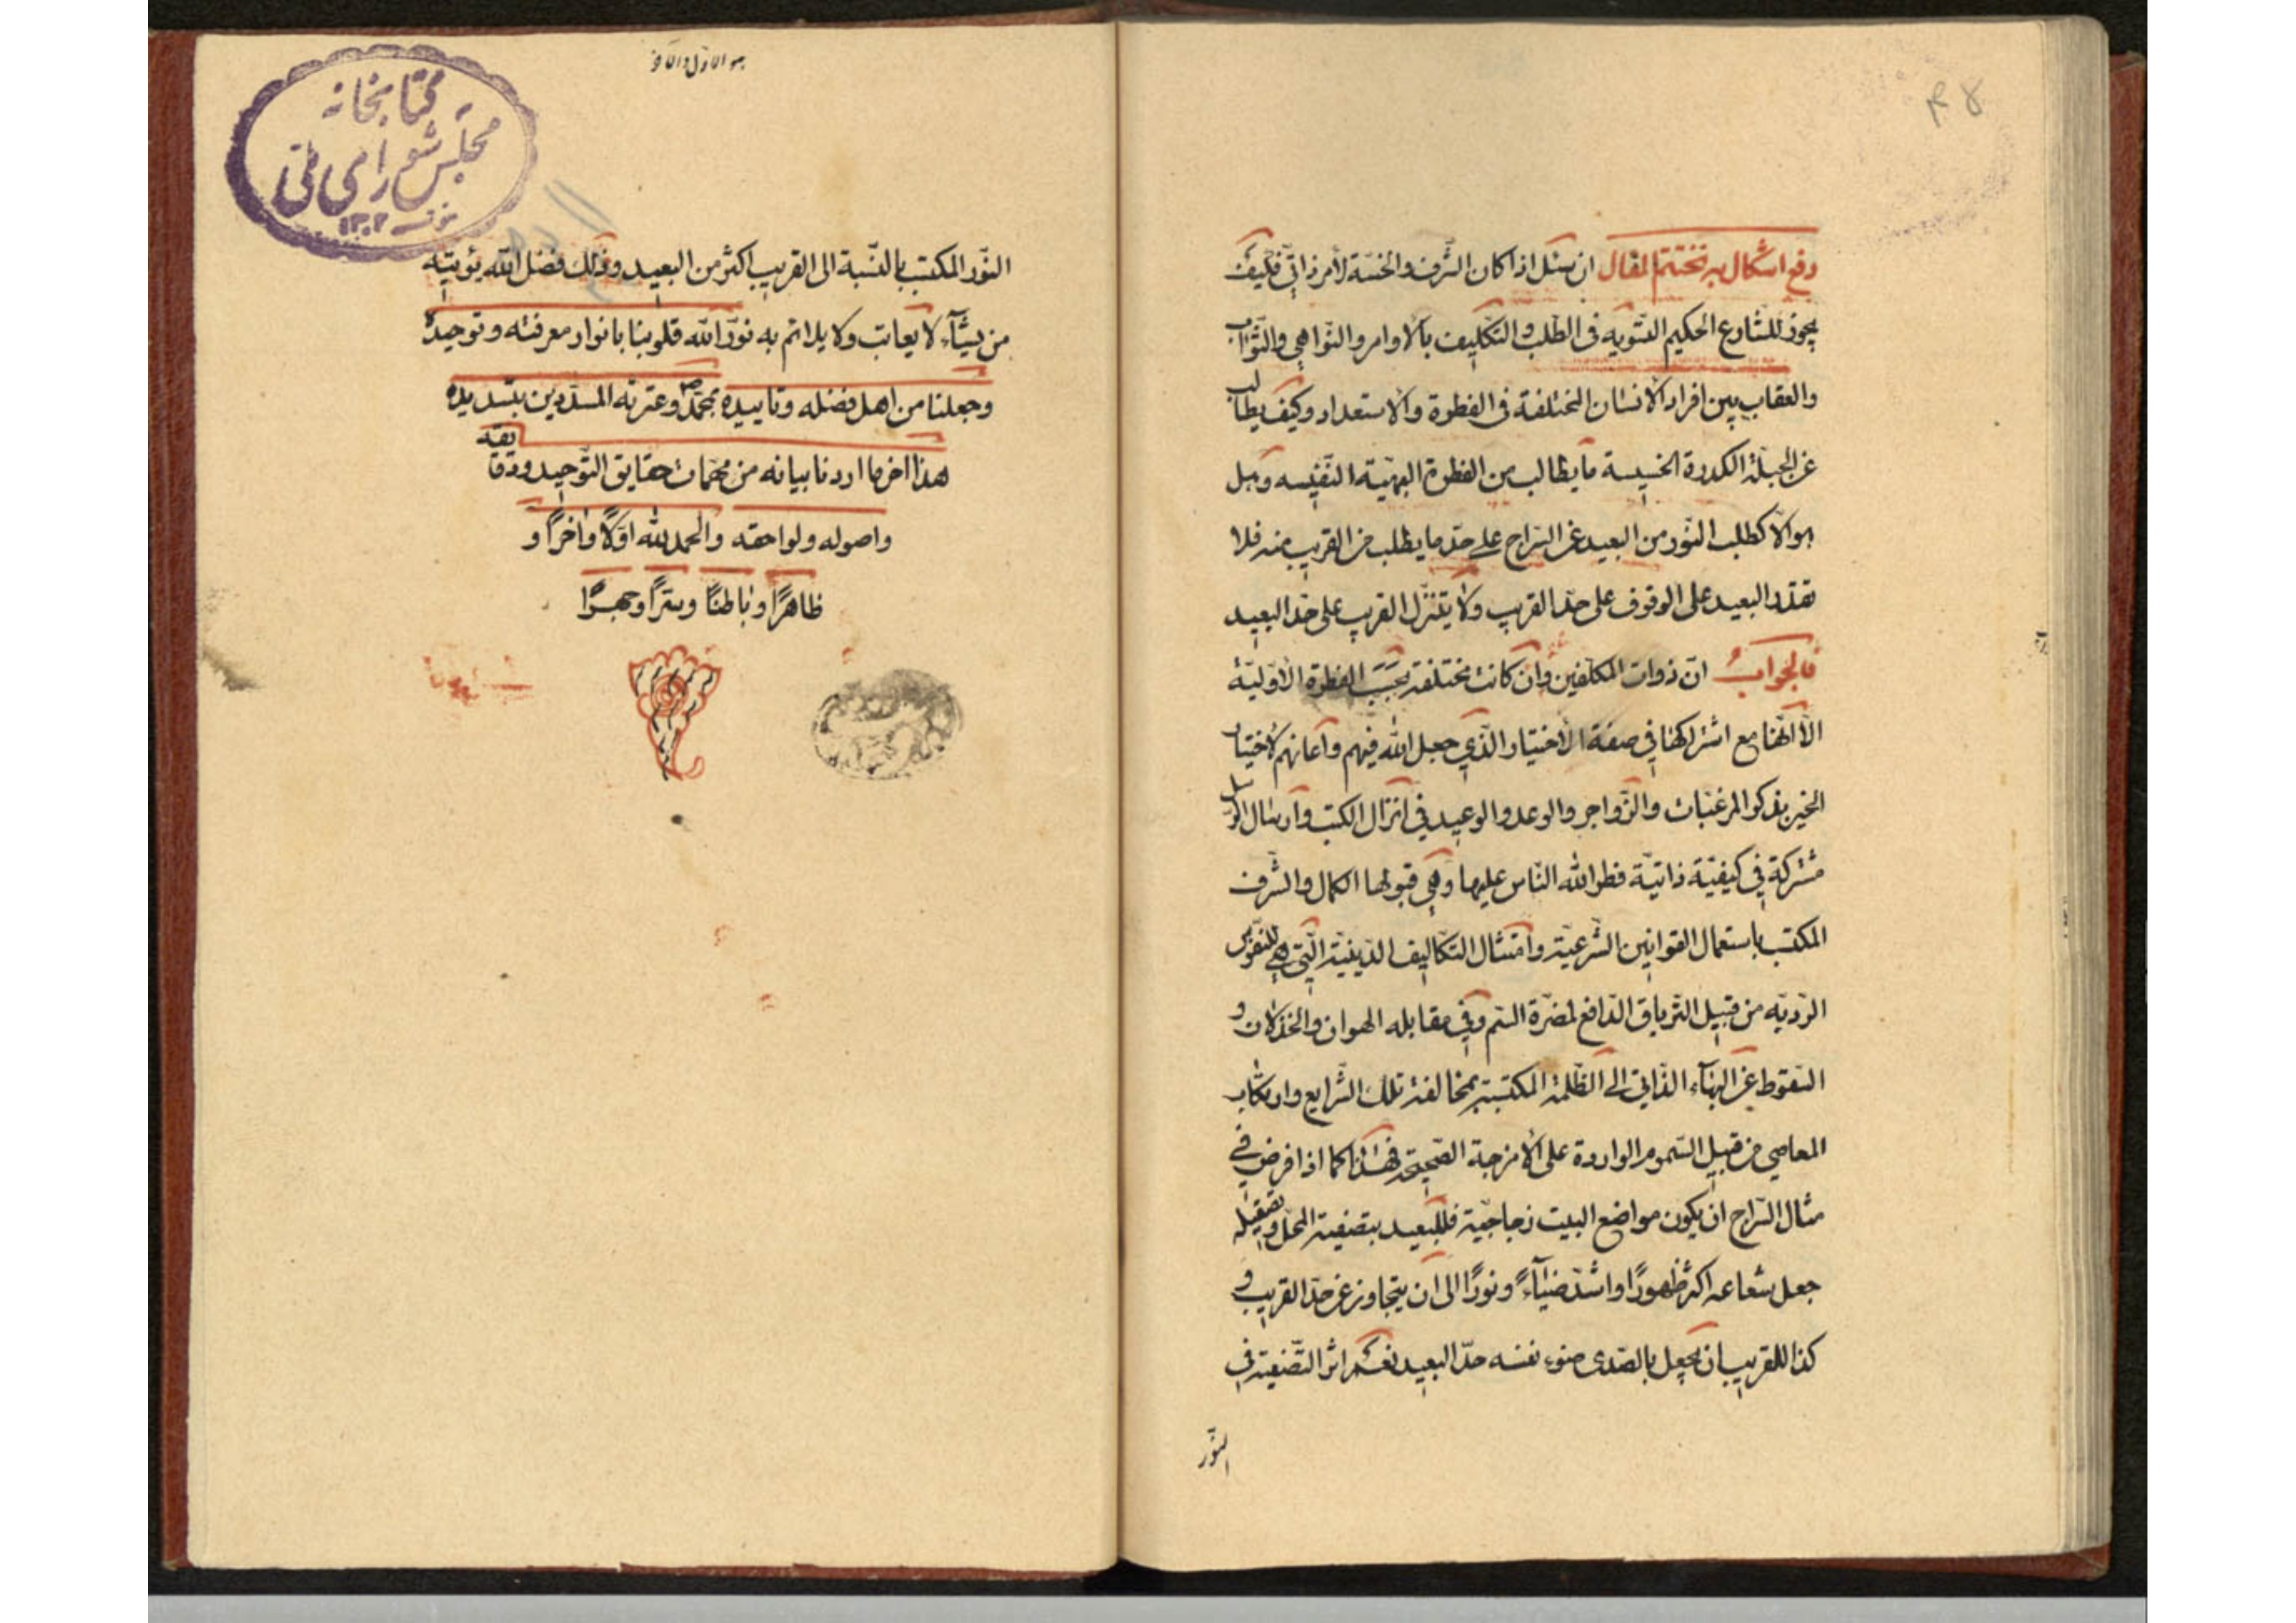 ۴۸
دفع اشكال به تختتم المقال ان سئل اذا كان الشرف والخسّة لأمر ذاتيّ فكيف
يجوز للشارع الحكيم التسويه فى الطلب والتكليف بالاوامر والنواهي والثواب
والعقاب بين افراد الانسان المختلفة فى الفطرة والاستعداد وكيف يطالب
عن الجبلة الكدرة الخسيسة ما يطالب من الفطرة البهيّة النفيسه وهل
هو الّا كطلب النّور من البعيد عن السّراج على حدّ ما يطلب من القريب منه فلا
يقدر البعيد على الوقوف على حدّ القريب ولا يتنزّل القريب على حدّ البعيد
فالجواب انّ ذوات المكلّفين وان كانت مختلفة بحسب الفطرة الأوّليّة
الّا انّها مع اشتراكها في صفة الأختيار الّذي جعل الله فيهم وأعانهم لاختيار
الخير بذكر المرغبات والزّواجر والوعد والوعيد في انزال الكتب وارسال الرّسل
مشتركة في كيفيّة ذاتيّة فطر الله النّاس عليها وهي قبولها الكمال والشّرف
المكتسب باستعمال القوانين الشّرعيّة وامتثال التّكاليف الدّينيّة الّتي هي للنفوس
الرّديّه من قبيل التّرياق الدّافع لمضرّة السّم وفي مقابله الهوان والخذلان و
السّقوط عن البهآء الذّاتي الى الظّلمة المكتسبة بمخالفة تلك الشّرايع وارتكاب
المعاصي من قبيل السّموم الواردة على الأمزجة الصّحيحة فهذا كما اذا فرض في
مثال السّراج ان يكون مواضع البيت زجاجيّة فللبعيد بتصفية المحلّ وتصقيله
جعل شعاعه اكثر ظهورًا واشدّ ضيآءً ونورًا الى ان يتجاوز عن حدّ القريب و
كذا للقريب ان يجعل بالصّدى ضوء نفسه حدّ البعيد نعم اثر التّصفية في
النّور
هو الاوّل والآخر
كتابخانه
مجلس شوراى ملّى
١٣٠٢
النّور المكتسب بالنّسبة الى القريب اكثر من البعيد وذلك فضل الله يؤتيه
من يشآء لا يعاتب ولا يلائم به نوّر الله قلوبنا بانوار معرفته وتوحيده
وجعلنا من اهل فضله وتاييده بمحمّد وعترته المسدّدين بتسديده
هذا اخر ما اردنا بيانه من مهمّات حقايق التّوحيد ودقايقه
واصوله ولواحقه والحمد لله اوّلًا واخرًا و
ظاهرًا وباطنًا وسرًّا وجهرًا